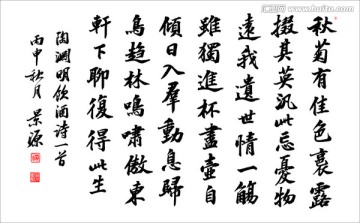 秋菊有佳色裛露
掇其英汎此忘憂物
遠我遺世情一觴
雖獨進杯盡壺自
傾日入羣動息歸
鳥趨林鳴嘯傲東
軒下聊復得此生
陶渊明飲酒詩一首
丙申秋月 景源